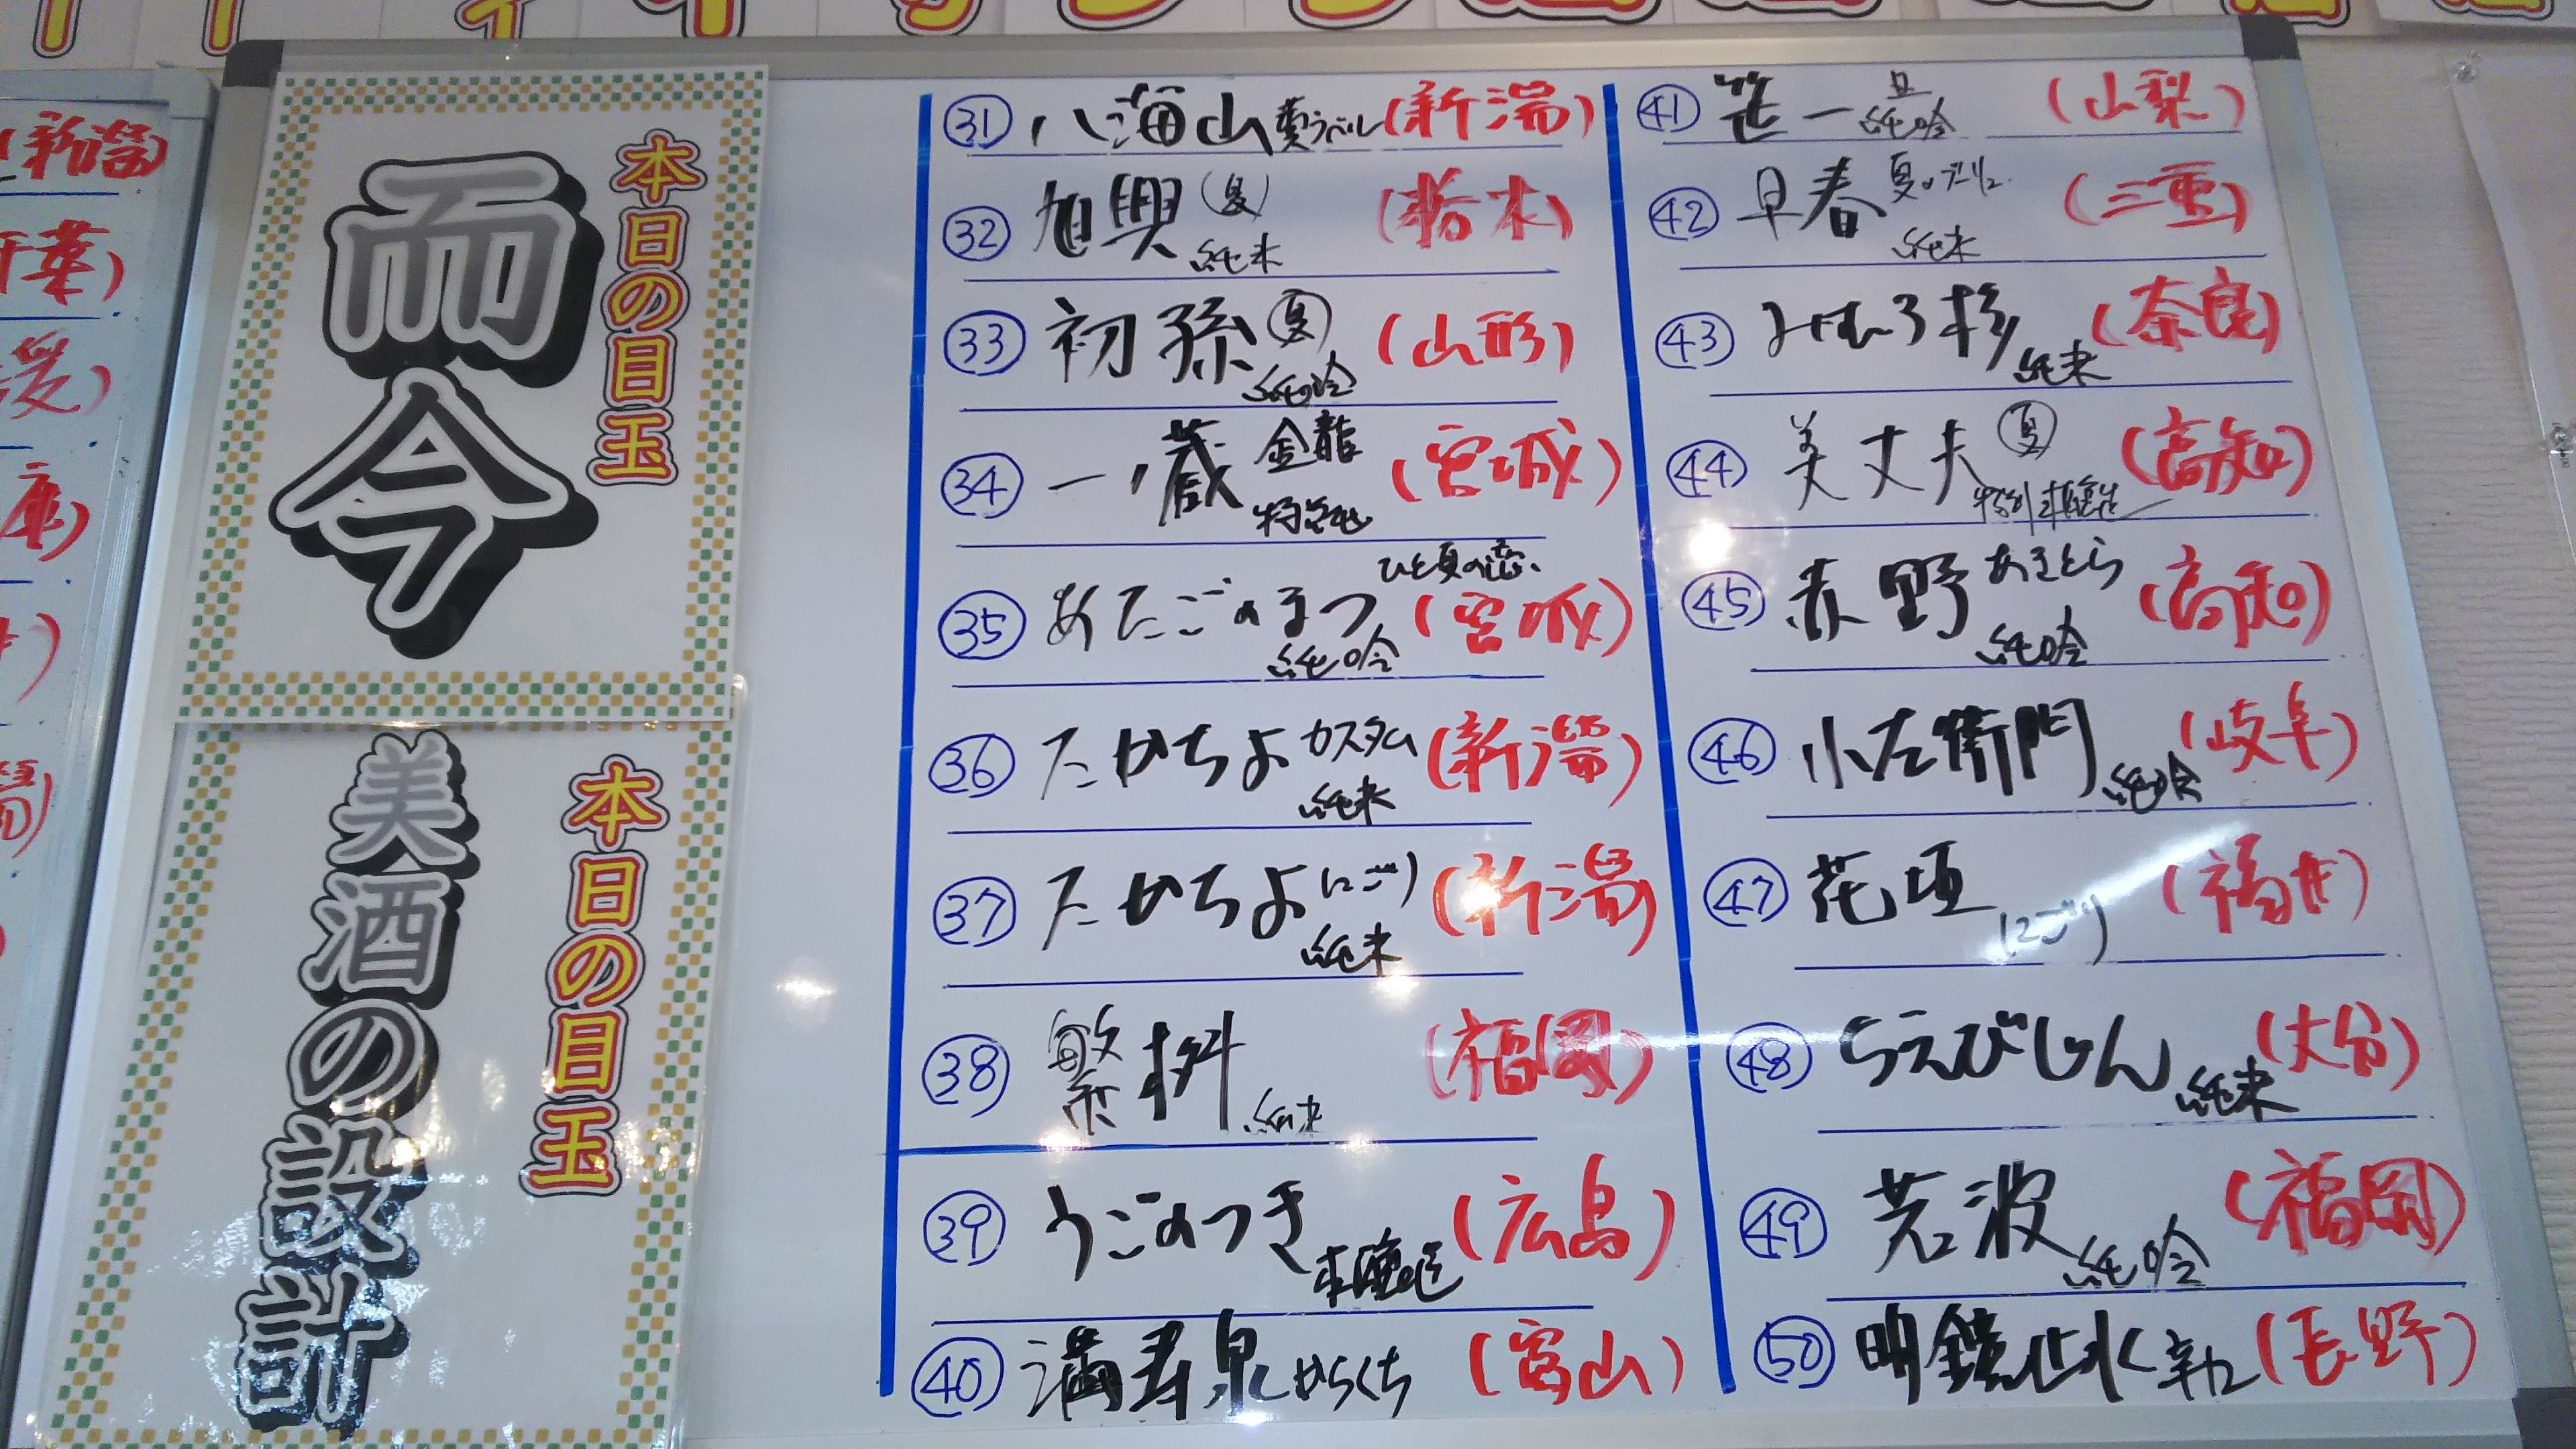 本日の目玉
而今
本日の目玉
美酒の設計
㉛ 八海山 黄ラベル (新潟)
㉜ 旭興 (夏) 純米 (栃木)
㉝ 初孫 夏 純吟 (山形)
㉞ 一ノ蔵 金龍 (宮城)
㉟ あたごのまつ ひと夏の恋 純吟 (宮城)
㊱ たかちよ カスタム 純米 (新潟)
㊲ たかちよ にごり 純米 (新潟)
㊳ 繁桝 純米 (福岡)
㊴ うごのつき (広島)
㊵ 満寿泉 からくち (富山)
㊶ 笹一 夏 純吟 (山梨)
㊷ 早春 純米 (三重)
㊸ みむろ杉 純米 (奈良)
㊹ 美丈夫 夏 特別本醸造 (高知)
㊺ 赤野 あきとら 純吟 (高知)
㊻ 小左衛門 純吟 (岐阜)
㊼ 花垣 にごり (福井)
㊽ ちえびじん 純米 (大分)
㊾ 若波 純吟 (福岡)
㊿ 明鏡止水 辛口 (長野)
(新潟)